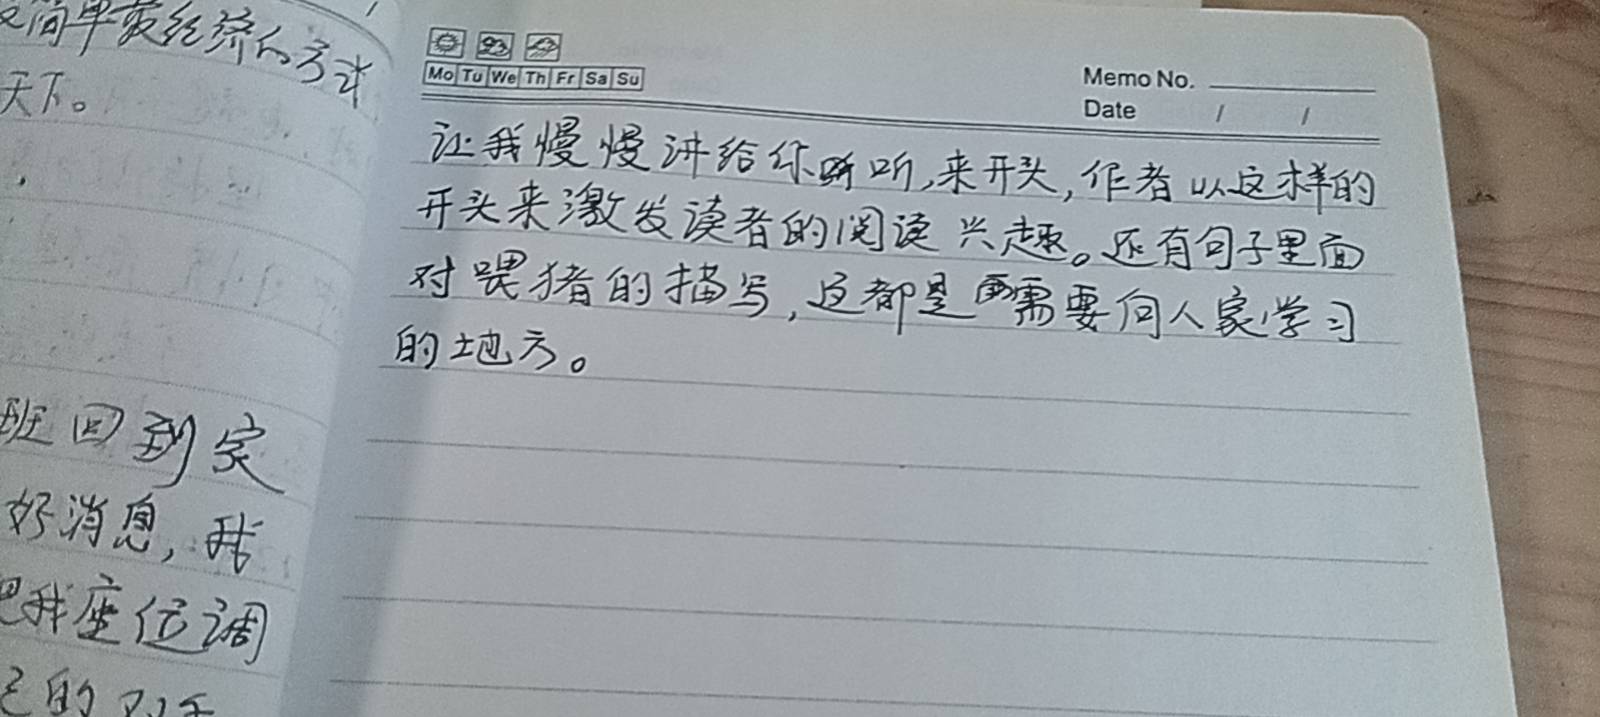 简单最经济的方式
天下。
班回到家
好消息,我
把我座位调
的对手
Mo Tu We Th Fr Sa Su
Memo No.
Date / /
让我慢慢讲给你听听,来开头,作者以这样的
开头来激发读者的阅读兴趣。还有句子里面
对喂猪的描写,这都是需要向人家学习
的地方。